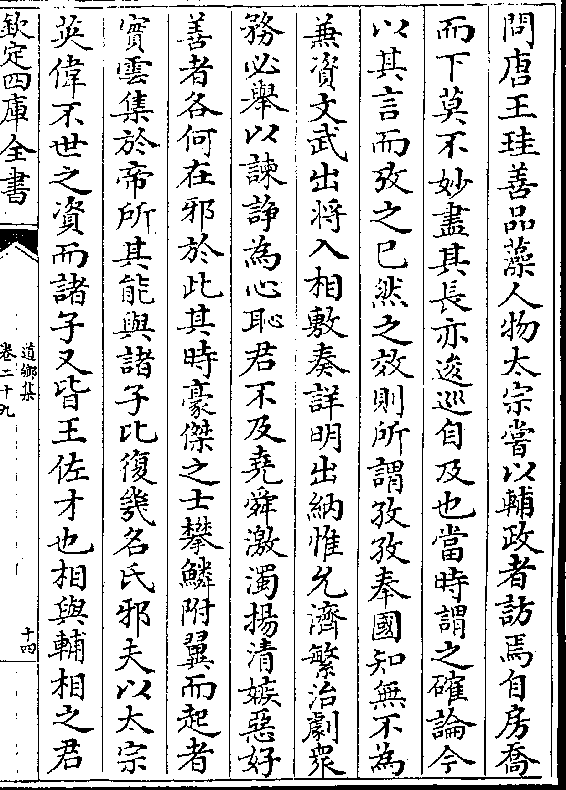 問唐王珪善品藻人物太宗嘗以輔政者訪焉自房喬
而下莫不妙盡其長亦逡巡自及也當時謂之確論今
以其言而攷之已然之效則所謂孜孜奉國知無不為
兼資文武出将入相敷奏詳明出納惟允濟繁治劇衆
務必舉以諫諍為心恥君不及堯舜激濁揚清嫉惡好
善者各何在邪於此其時豪傑之士攀鱗附翼而起者
實雲集於帝所其能與諸子比復幾名氏邪夫以太宗
英偉不世之資而諸子又皆王佐才也相與輔相之君
欽定四庫全書
道鄉集
卷二十九
十四